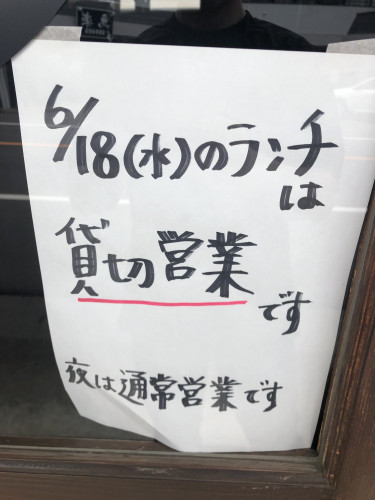 6/18(水)のランチ
は
貸切営業
です
夜は通常営業です